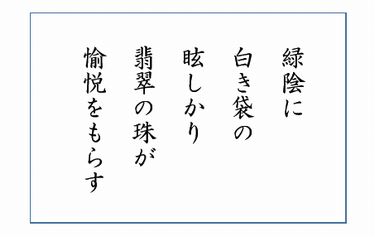 緑陰に
白き袋の
眩しかり
翡翠の珠が
愉悦をもらす